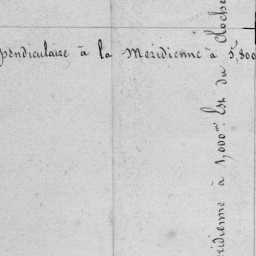 pendiculaire à la Meridienne à 5,800
ridienne à 1,000m Est du Cloche